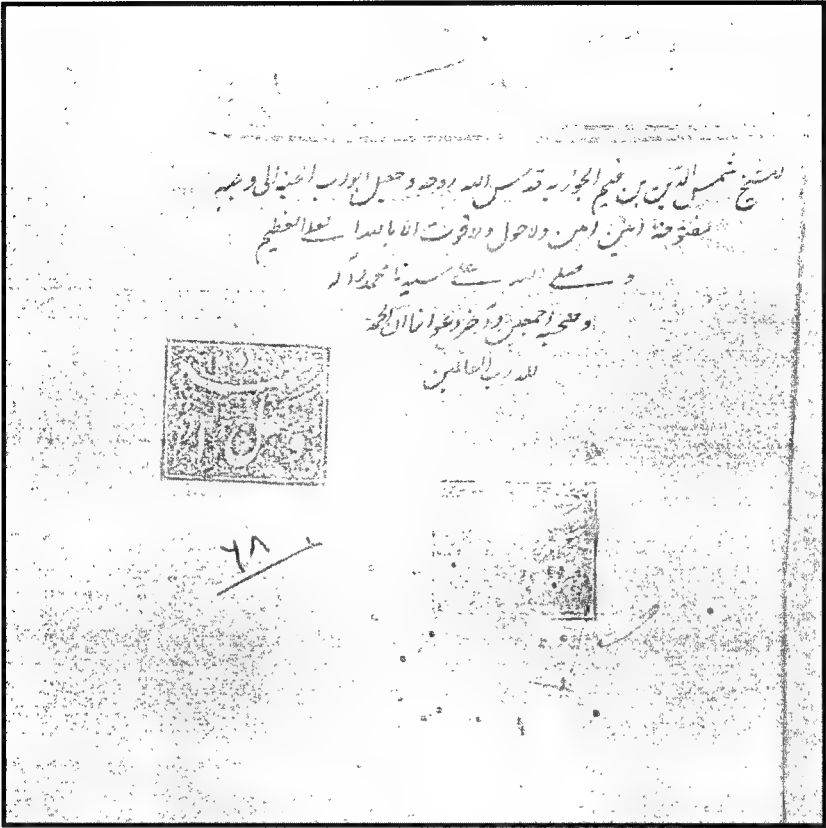 للشيخ شمس الدين بن قيم الجوزيه قدس الله روحه وجعل ابواب الجنة الى وجهه
مفتوحة امين امين ولا حول ولا قوت الا بالله العلي العظيم
وصلى الله على سيدنا محمد وآله
وصحبه اجمعين وآخر دعوانا ان الحمد
لله رب العالمين
٦٨